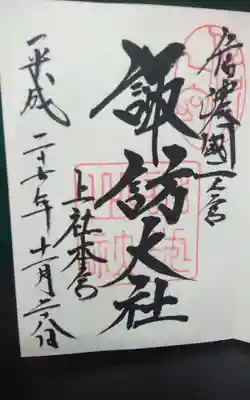 信濃國一之宮
諏訪大社
上社本宮
平成二十七年十一月